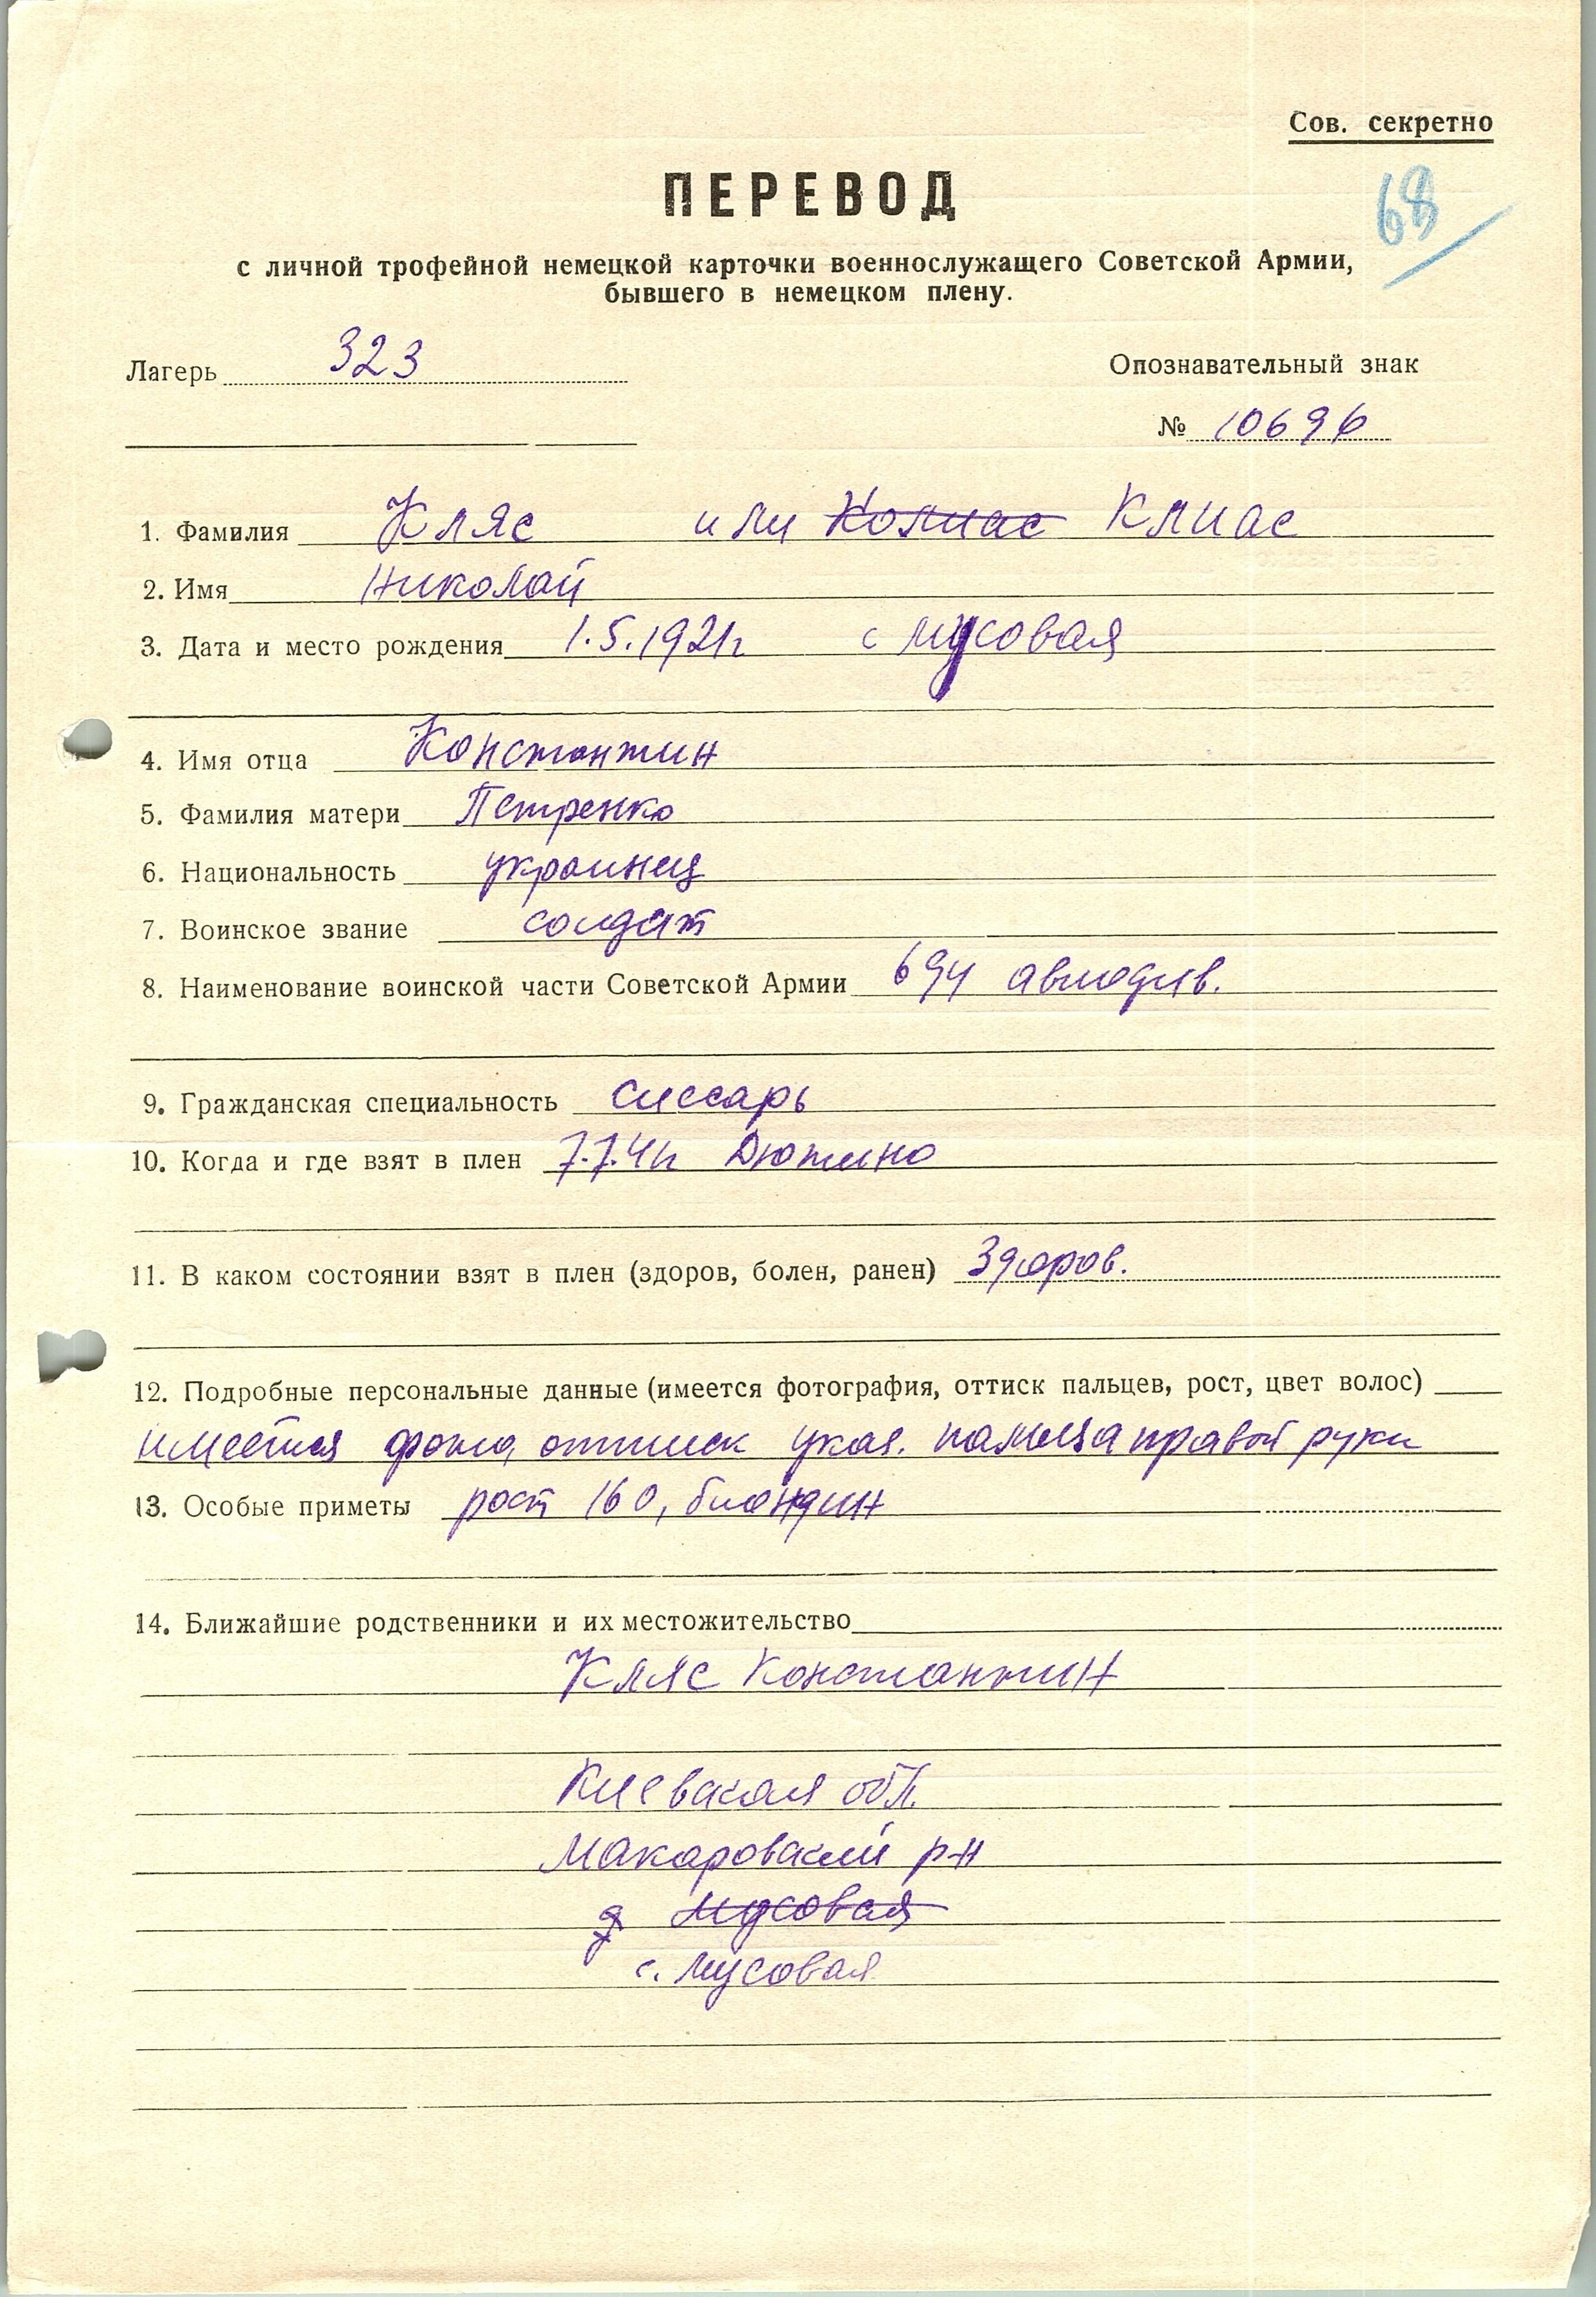 Сов. секретно
68
ПЕРЕВОД
с личной трофейной немецкой карточки военнослужащего Советской Армии,
бывшего в немецком плену.
Лагерь 323
Опознавательный знак
№ 10696
1. Фамилия Кляс или Колиас Клиас
2. Имя Николай
3. Дата и место рождения 1.5.1921г с Мусовая
4. Имя отца Константин
5. Фамилия матери Петренко
6. Национальность украинец
7. Воинское звание солдат
8. Наименование воинской части Советской Армии 694 авиодив.
9. Гражданская специальность слесарь
10. Когда и где взят в плен 7.7.41г Дютино
11. В каком состоянии взят в плен (здоров, болен, ранен) Здоров.
12. Подробные персональные данные (имеется фотография, оттиск пальцев, рост, цвет волос)
имеется фото, оттиск указ. пальца правой руки
13. Особые приметы рост 160, блондин
14. Ближайшие родственники и их местожительство
Кляс Константин
Киевская обл.
Макаровский р-н
д Мусовая
с. Мусовая